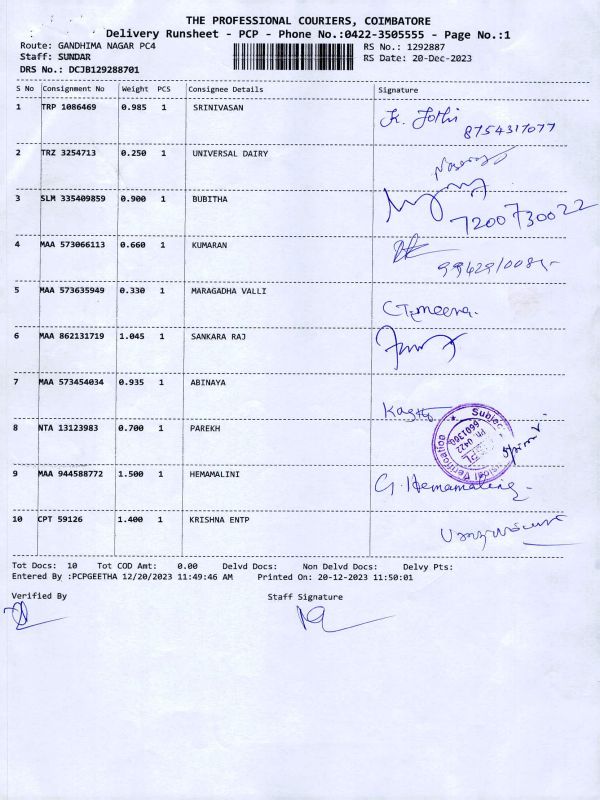 THE PROFESSIONAL COURIERS, COIMBATORE
Delivery Runsheet - PCP - Phone No.:0422-3505555 - Page No.:1
Route: GANDHIMA NAGAR PC4
RS No.: 1292887
Staff: SUNDAR
RS Date: 20-Dec-2023
DRS No.: DCJB129288701
S No Consignment No Weight PCS Consignee Details Signature
1 TRP 1086469 0.985 1 SRINIVASAN K. Jothi
8754317077
2 TRZ 3254713 0.250 1 UNIVERSAL DAIRY
3 SLM 335409859 0.900 1 BUBITHA
7200730022
4 MAA 573066113 0.660 1 KUMARAN
5 MAA 573635949 0.330 1 MARAGADHA VALLI
6 MAA 862131719 1.045 1 SANKARA RAJ
7 MAA 573454034 0.935 1 ABINAYA
8 NTA 13123983 0.700 1 PAREKH
9 MAA 944588772 1.500 1 HEMAMALINI
G. Hemamalini
10 CPT 59126 1.400 1 KRISHNA ENTP
Tot Docs: 10 Tot COD Amt: 0.00 Delvd Docs: Non Delvd Docs: Delvy Pts:
Entered By :PCPGEETHA 12/20/2023 11:49:46 AM Printed On: 20-12-2023 11:50:01
Verified By Staff Signature